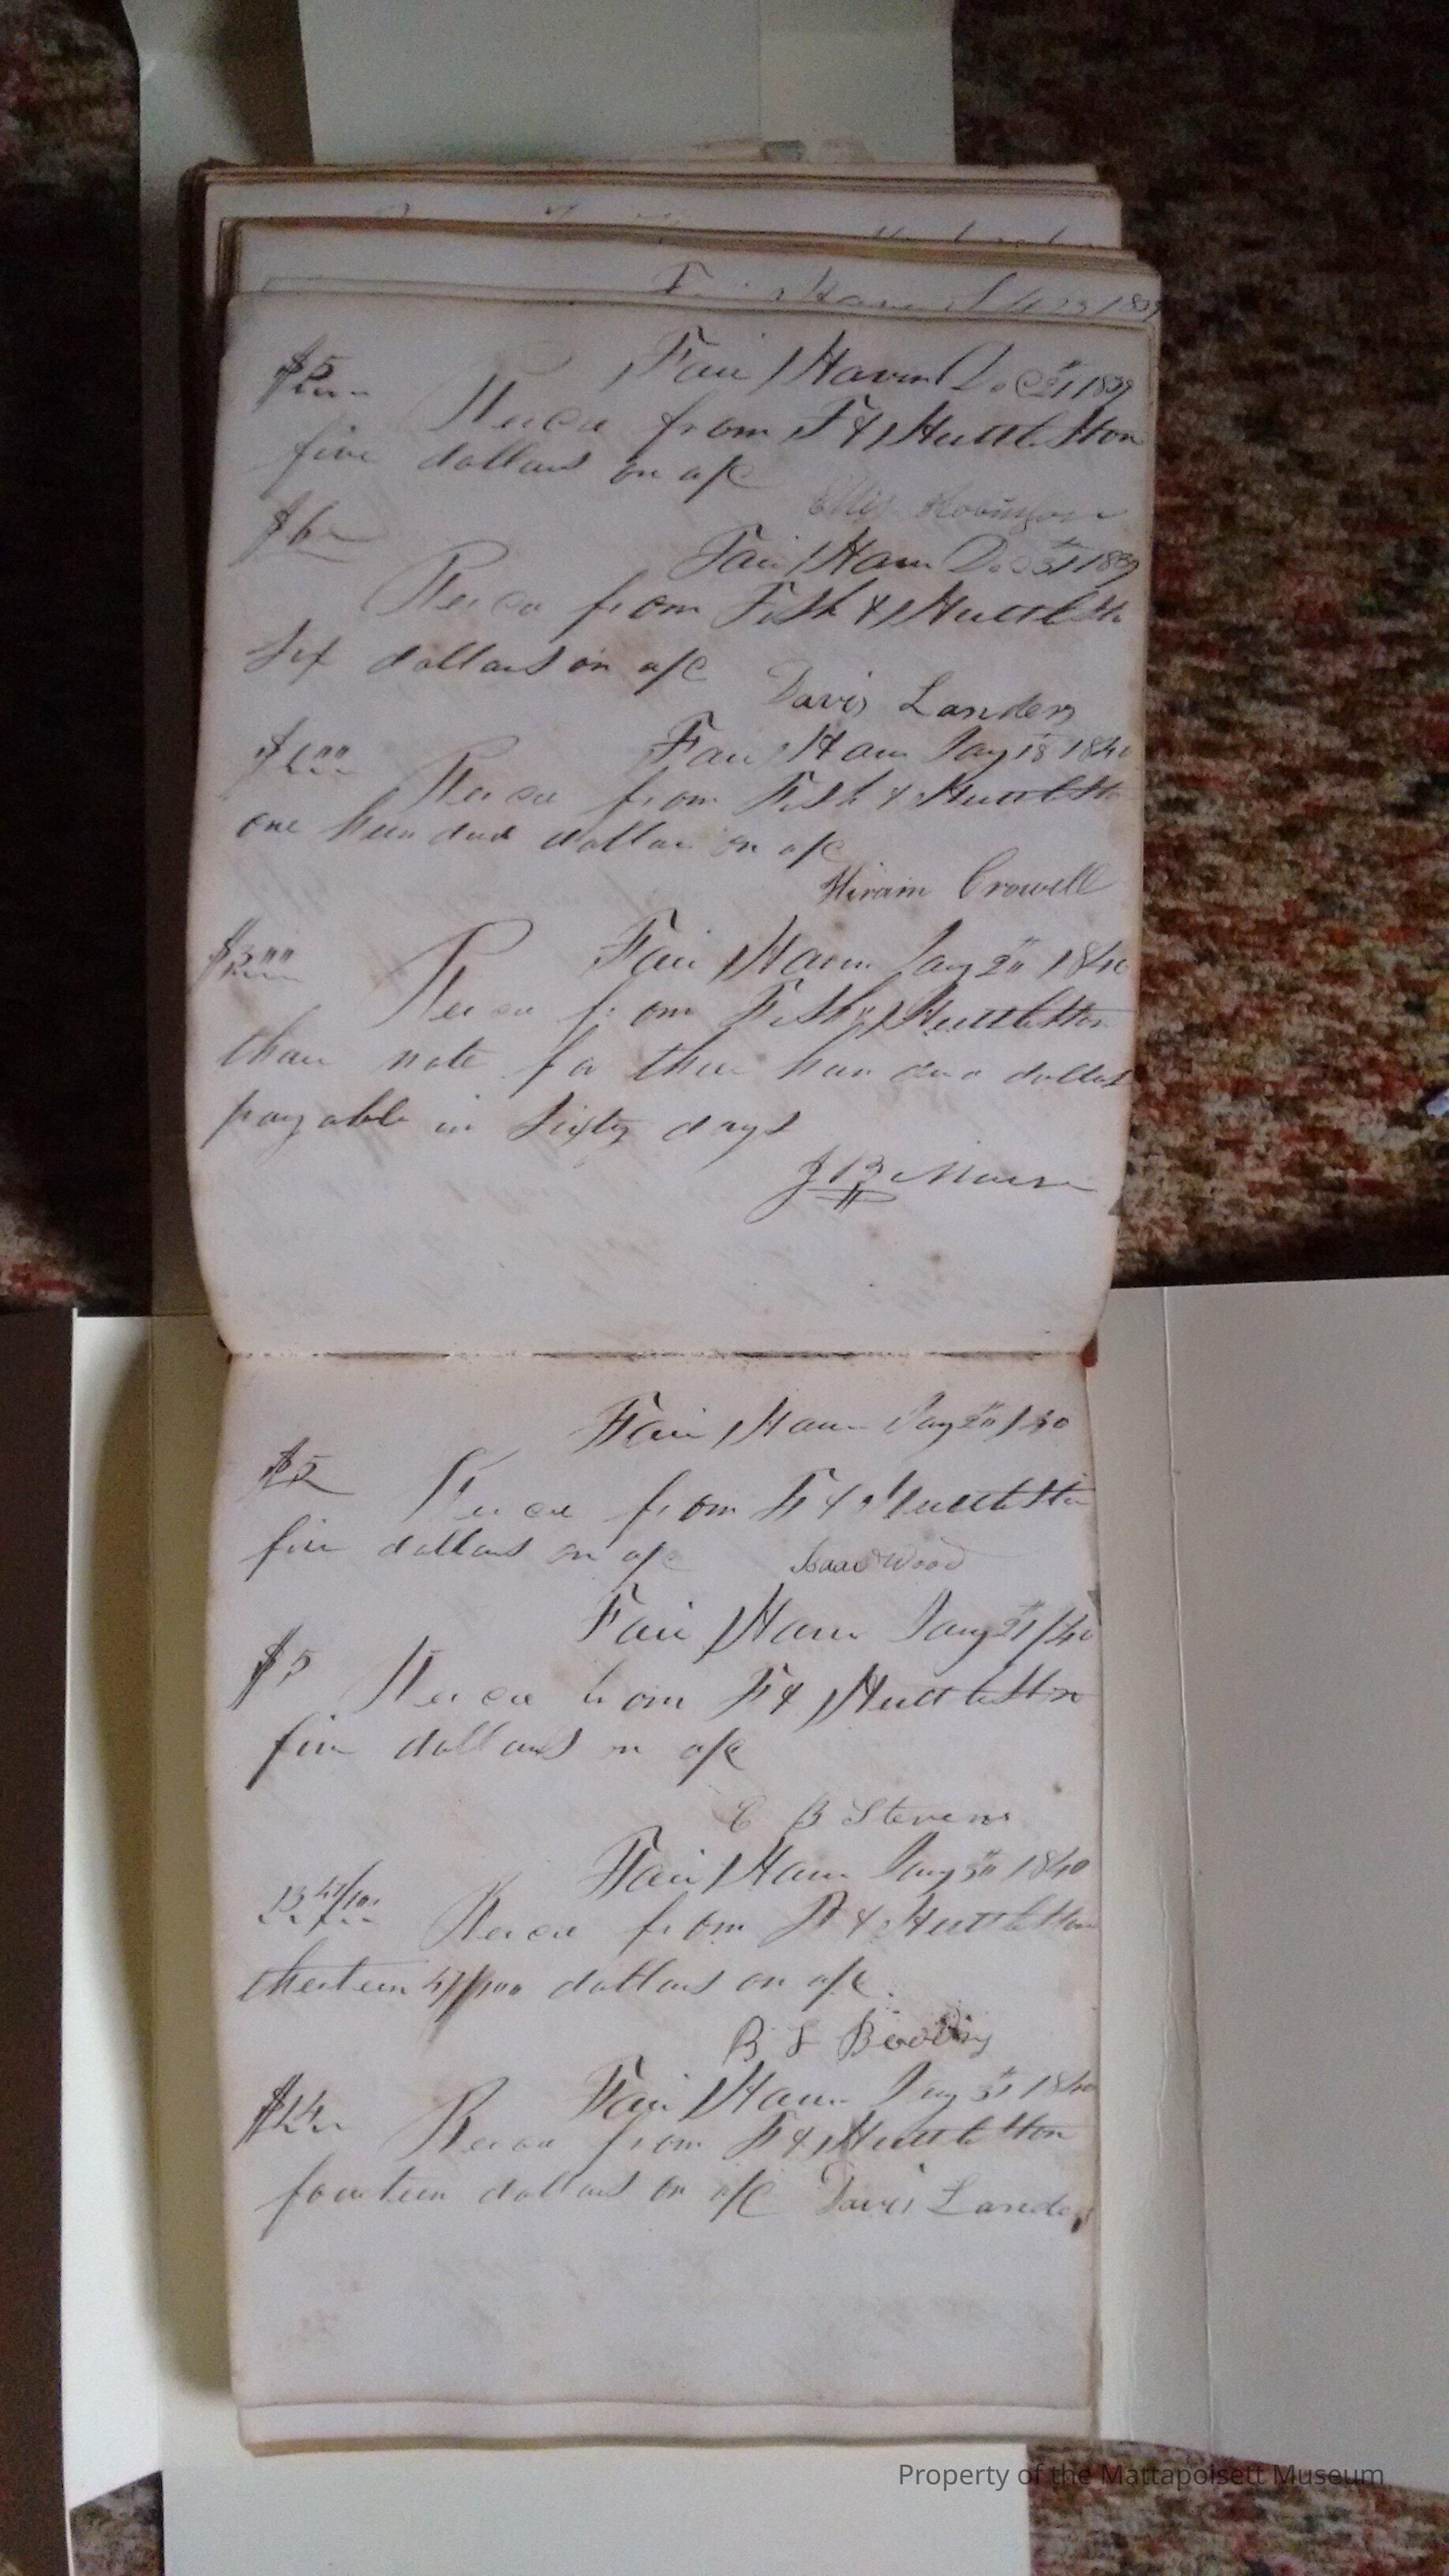 Fair Haven Dec 21 1839
$5
Reced from F & Huttleston
five dollars on a/c
Ellis Robinson
$6
Fair Haven Dec 31 1839
Reced from Fish & Huttleston
Six dollars on a/c
Davis Landers
Fair Haven Jany 18 1840
$100
Reced from Fish & Huttleston
one hundred dollars on a/c
Hiram Crowell
Fair Haven Jany 20 1840
$300
Reced from Fish & Huttleston
thare note for three hundred dollars
payable in Sixty days
J B
Fair Haven Jany 20 / 40
$5
Reced from F & Huttleston
five dollars on a/c
Isaac Wood
Fair Haven Jany 21 / 40
$5
Reced from F & Huttleston
five dollars on a/c
C B Stevens
Fair Haven Jany 30 1840
13 47/100
Reced from F & Huttleston
therteen 47/100 dollars on a/c
B F
Fair Haven Jany 31 1840
$14
Reced from F & Huttleston
fourteen dollars on a/c Davis Landers
Property of the Mattapoisett Museum